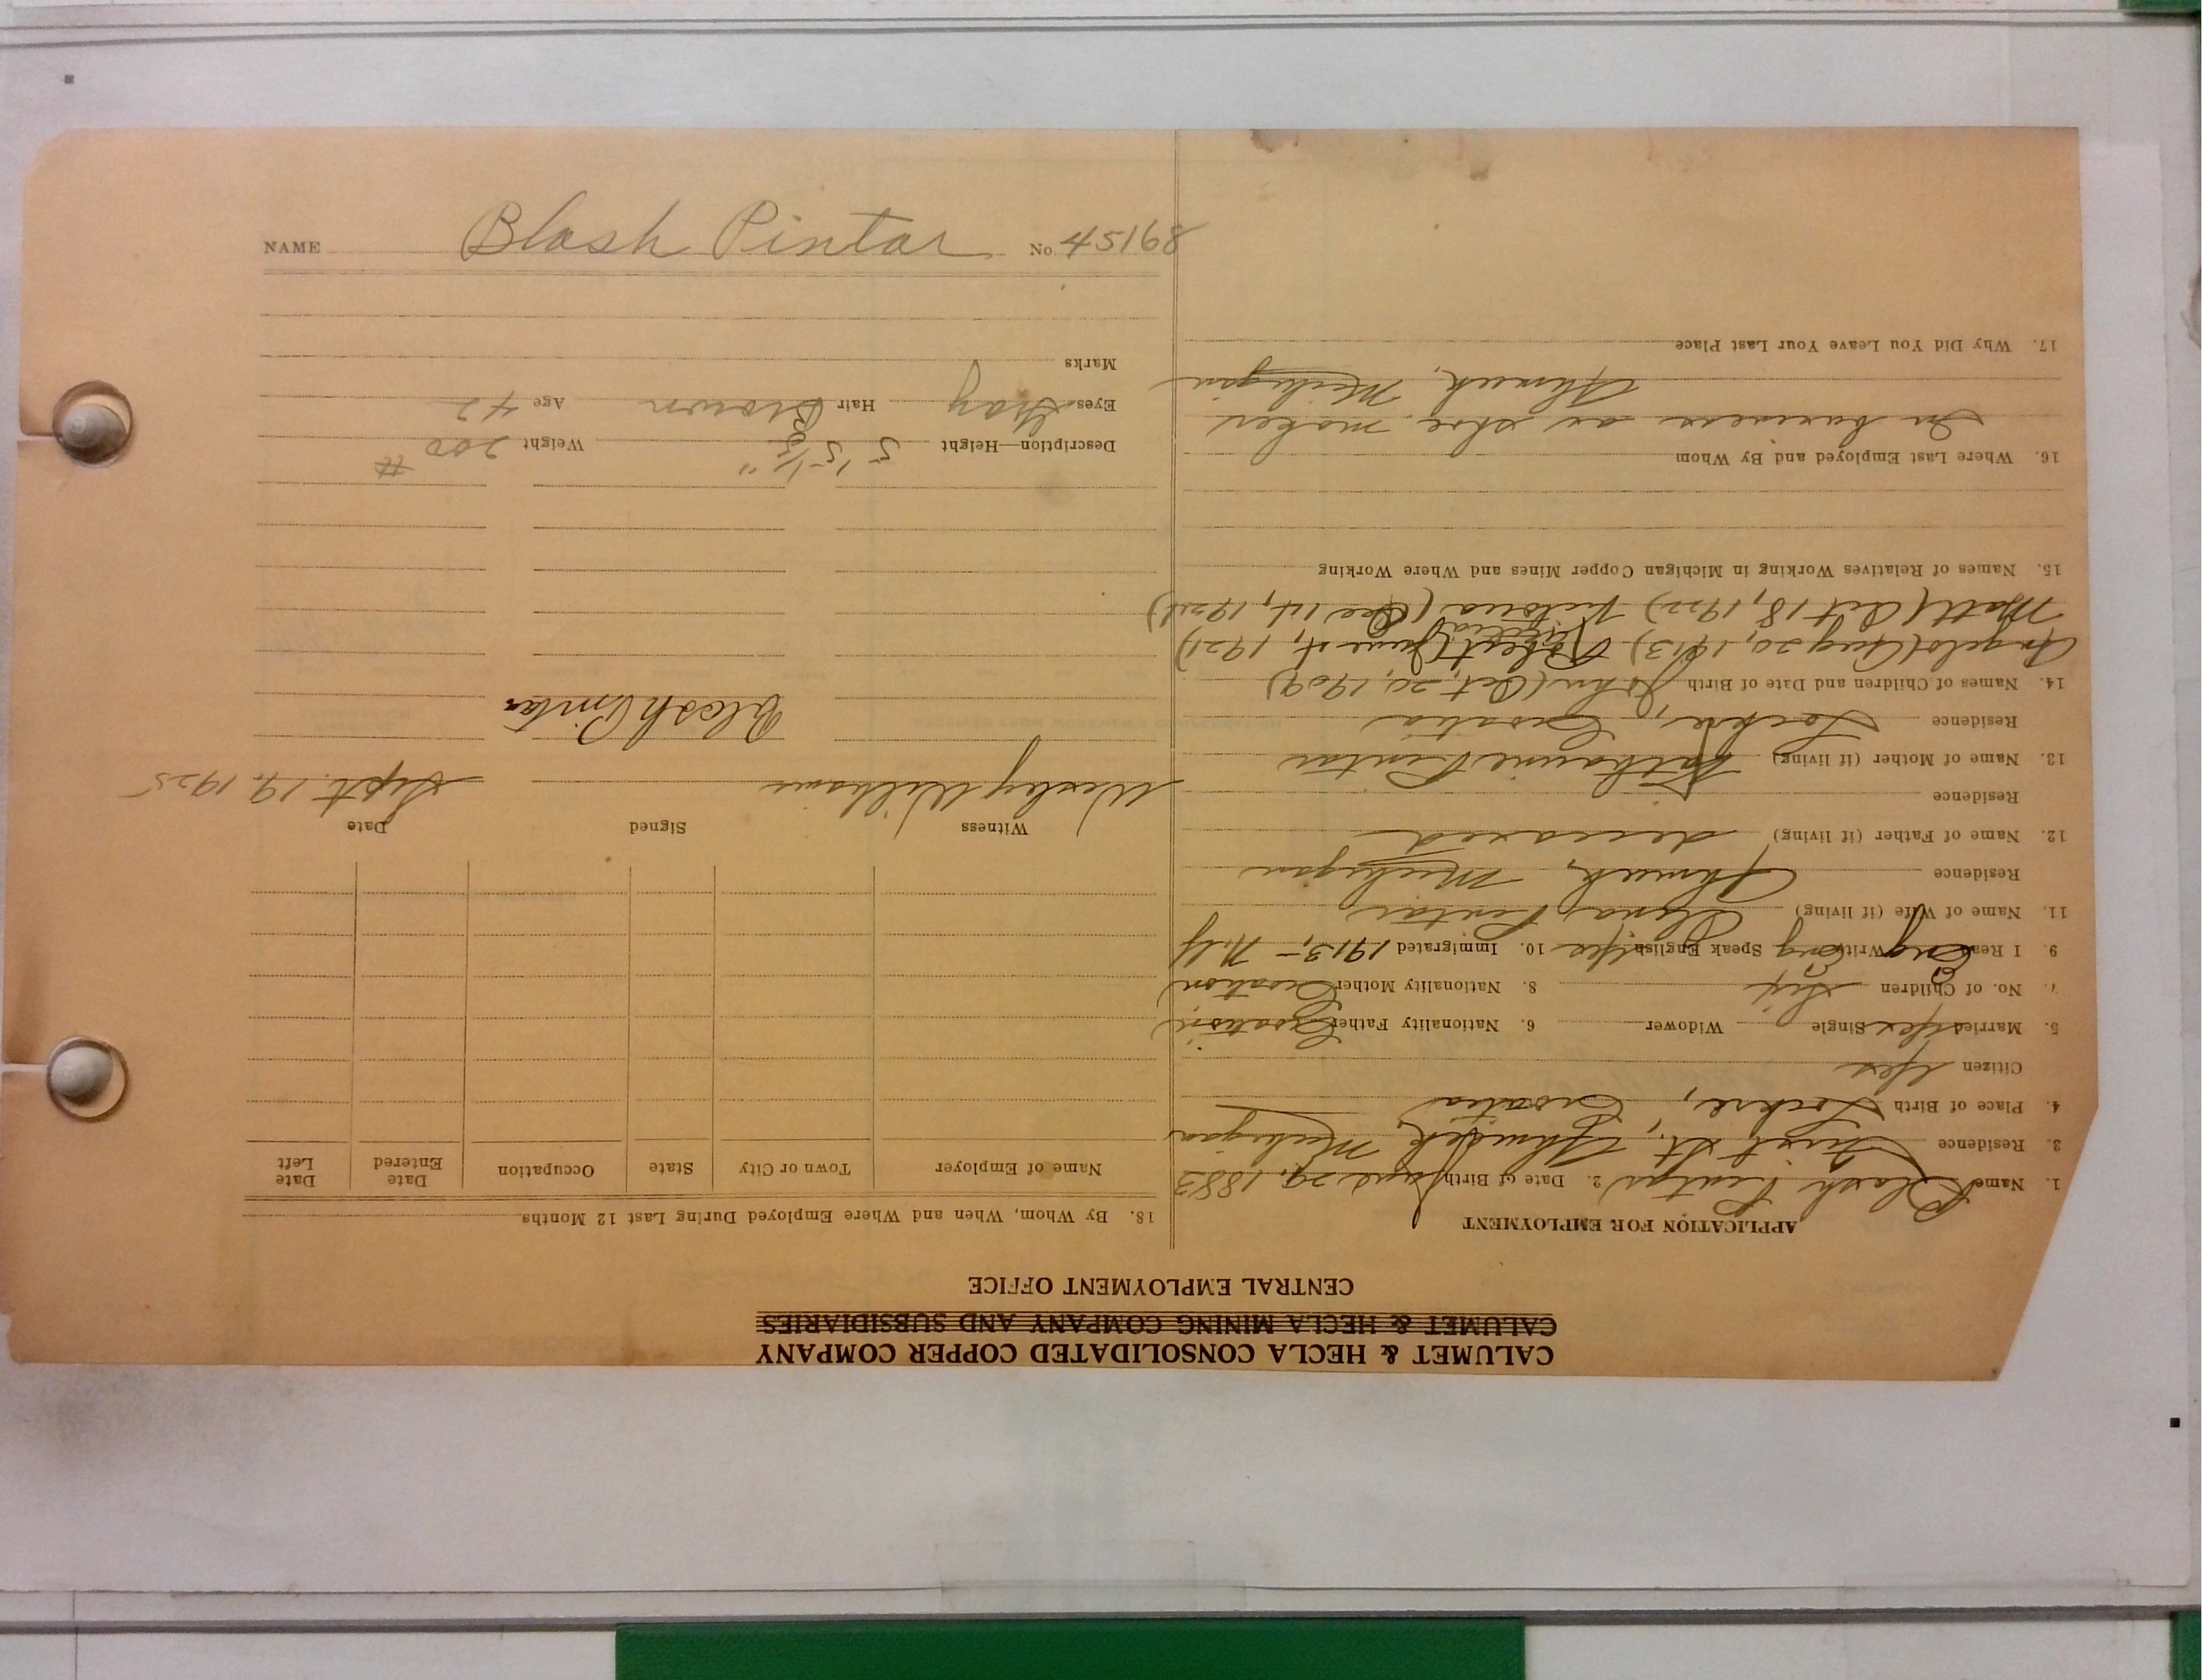 CALUMET & HECLA CONSOLIDATED COPPER COMPANY
CALUMET & HECLA MINING COMPANY AND SUBSIDIARIES
CENTRAL EMPLOYMENT OFFICE
APPLICATION FOR EMPLOYMENT
1. Name Blash Pintar 2. Date of Birth June 29, 1883
3. Residence First St., Ahmeek, Michigan
4. Place of Birth Lockre, Croatia
Citizen Yes
5. Married Yes Single Widower 6. Nationality Father Croatian
7. No. of Children Six 8. Nationality Mother Croatian
9. I Read Eng Write Eng Speak English Yes 10. Immigrated 1913, – N.Y.
11. Name of Wife (if living) Pintar
Residence Ahmeek, Michigan
12. Name of Father (if living) deceased
Residence
13. Name of Mother (if living) Katharine Pintar
Residence Lockre, Croatia
14. Names of Children and Date of Birth John (Oct. 20, 1909)
Angelo (Aug 20, 1913) Robert (June 4, 1921)
Matt (Oct 18, 1922) Victoria (Dec 14, 1924)
15. Names of Relatives of Working in Michigan Copper Mines and Where Working
16. Where Last Employed and By Whom
In business as shoe maker
Ahmeek, Michigan
17. Why Did You Leave Your Last Place
18. By Whom, When and Where Employed During Last 12 Months
Name of Employer Town or City State Occupation Date Entered Date Left
Witness Signed Date
Wesley Williams Sept. 19, 1925
Blash Pintar
Description—Height 5' 5½" Weight 200 #
Eyes Gray Hair Brown Age 42
Marks
NAME Blash Pintar No. 45168